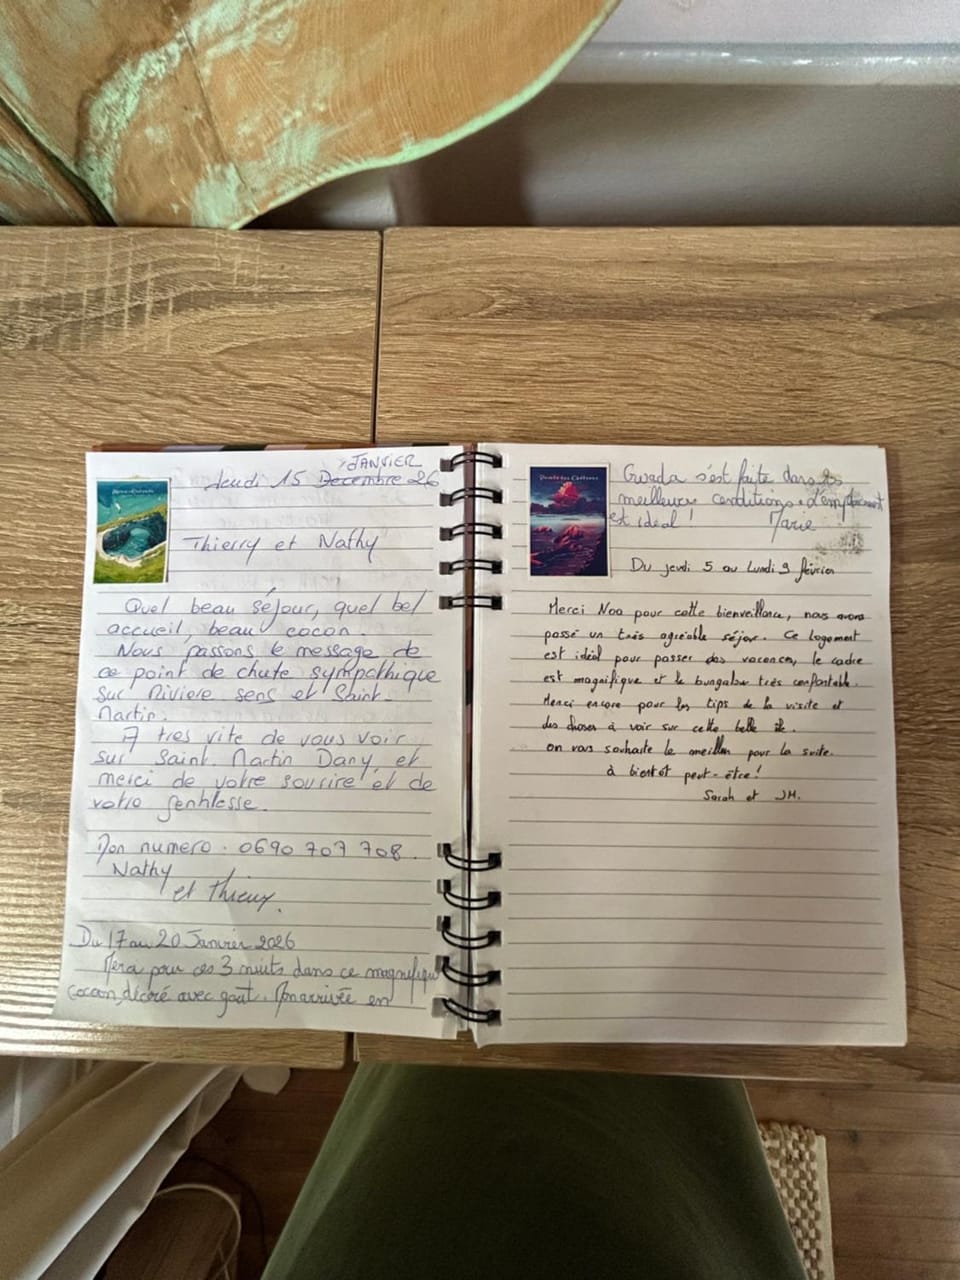 JANVIER
Jeudi 15 Décembre 26
Thierry et Nathy
Quel beau séjour, quel bel
accueil, beau cocon.
Nous passons le message de
ce point de chute sympathique
sur Rivière sens et Saint-
Martin.
A très vite de vous voir
sur Saint-Martin Dany, et
merci de votre sourire et de
votre gentillesse.
Mon numero. 0690 707 708.
Nathy
et Thierry.
Du 17 au 20 Janvier 2026
Merci pour ces 3 nuits dans ce magnifique
cocon, décoré avec goût. Mon arrivée en
Gwada s'est faite dans les
meilleures conditions. L'emplacement
est idéal ! Marie
Du jeudi 5 au lundi 9 février
Merci Noa pour cette bienveillance, nous avons
passé un très agréable séjour. Ce logement
est idéal pour passer des vacances, le cadre
est magnifique et le bungalow très confortable.
Merci encore pour les tips de la visite et
des choses à voir sur cette belle île.
on vous souhaite le meilleur pour la suite.
à bientôt peut-être !
Sarah et JM.